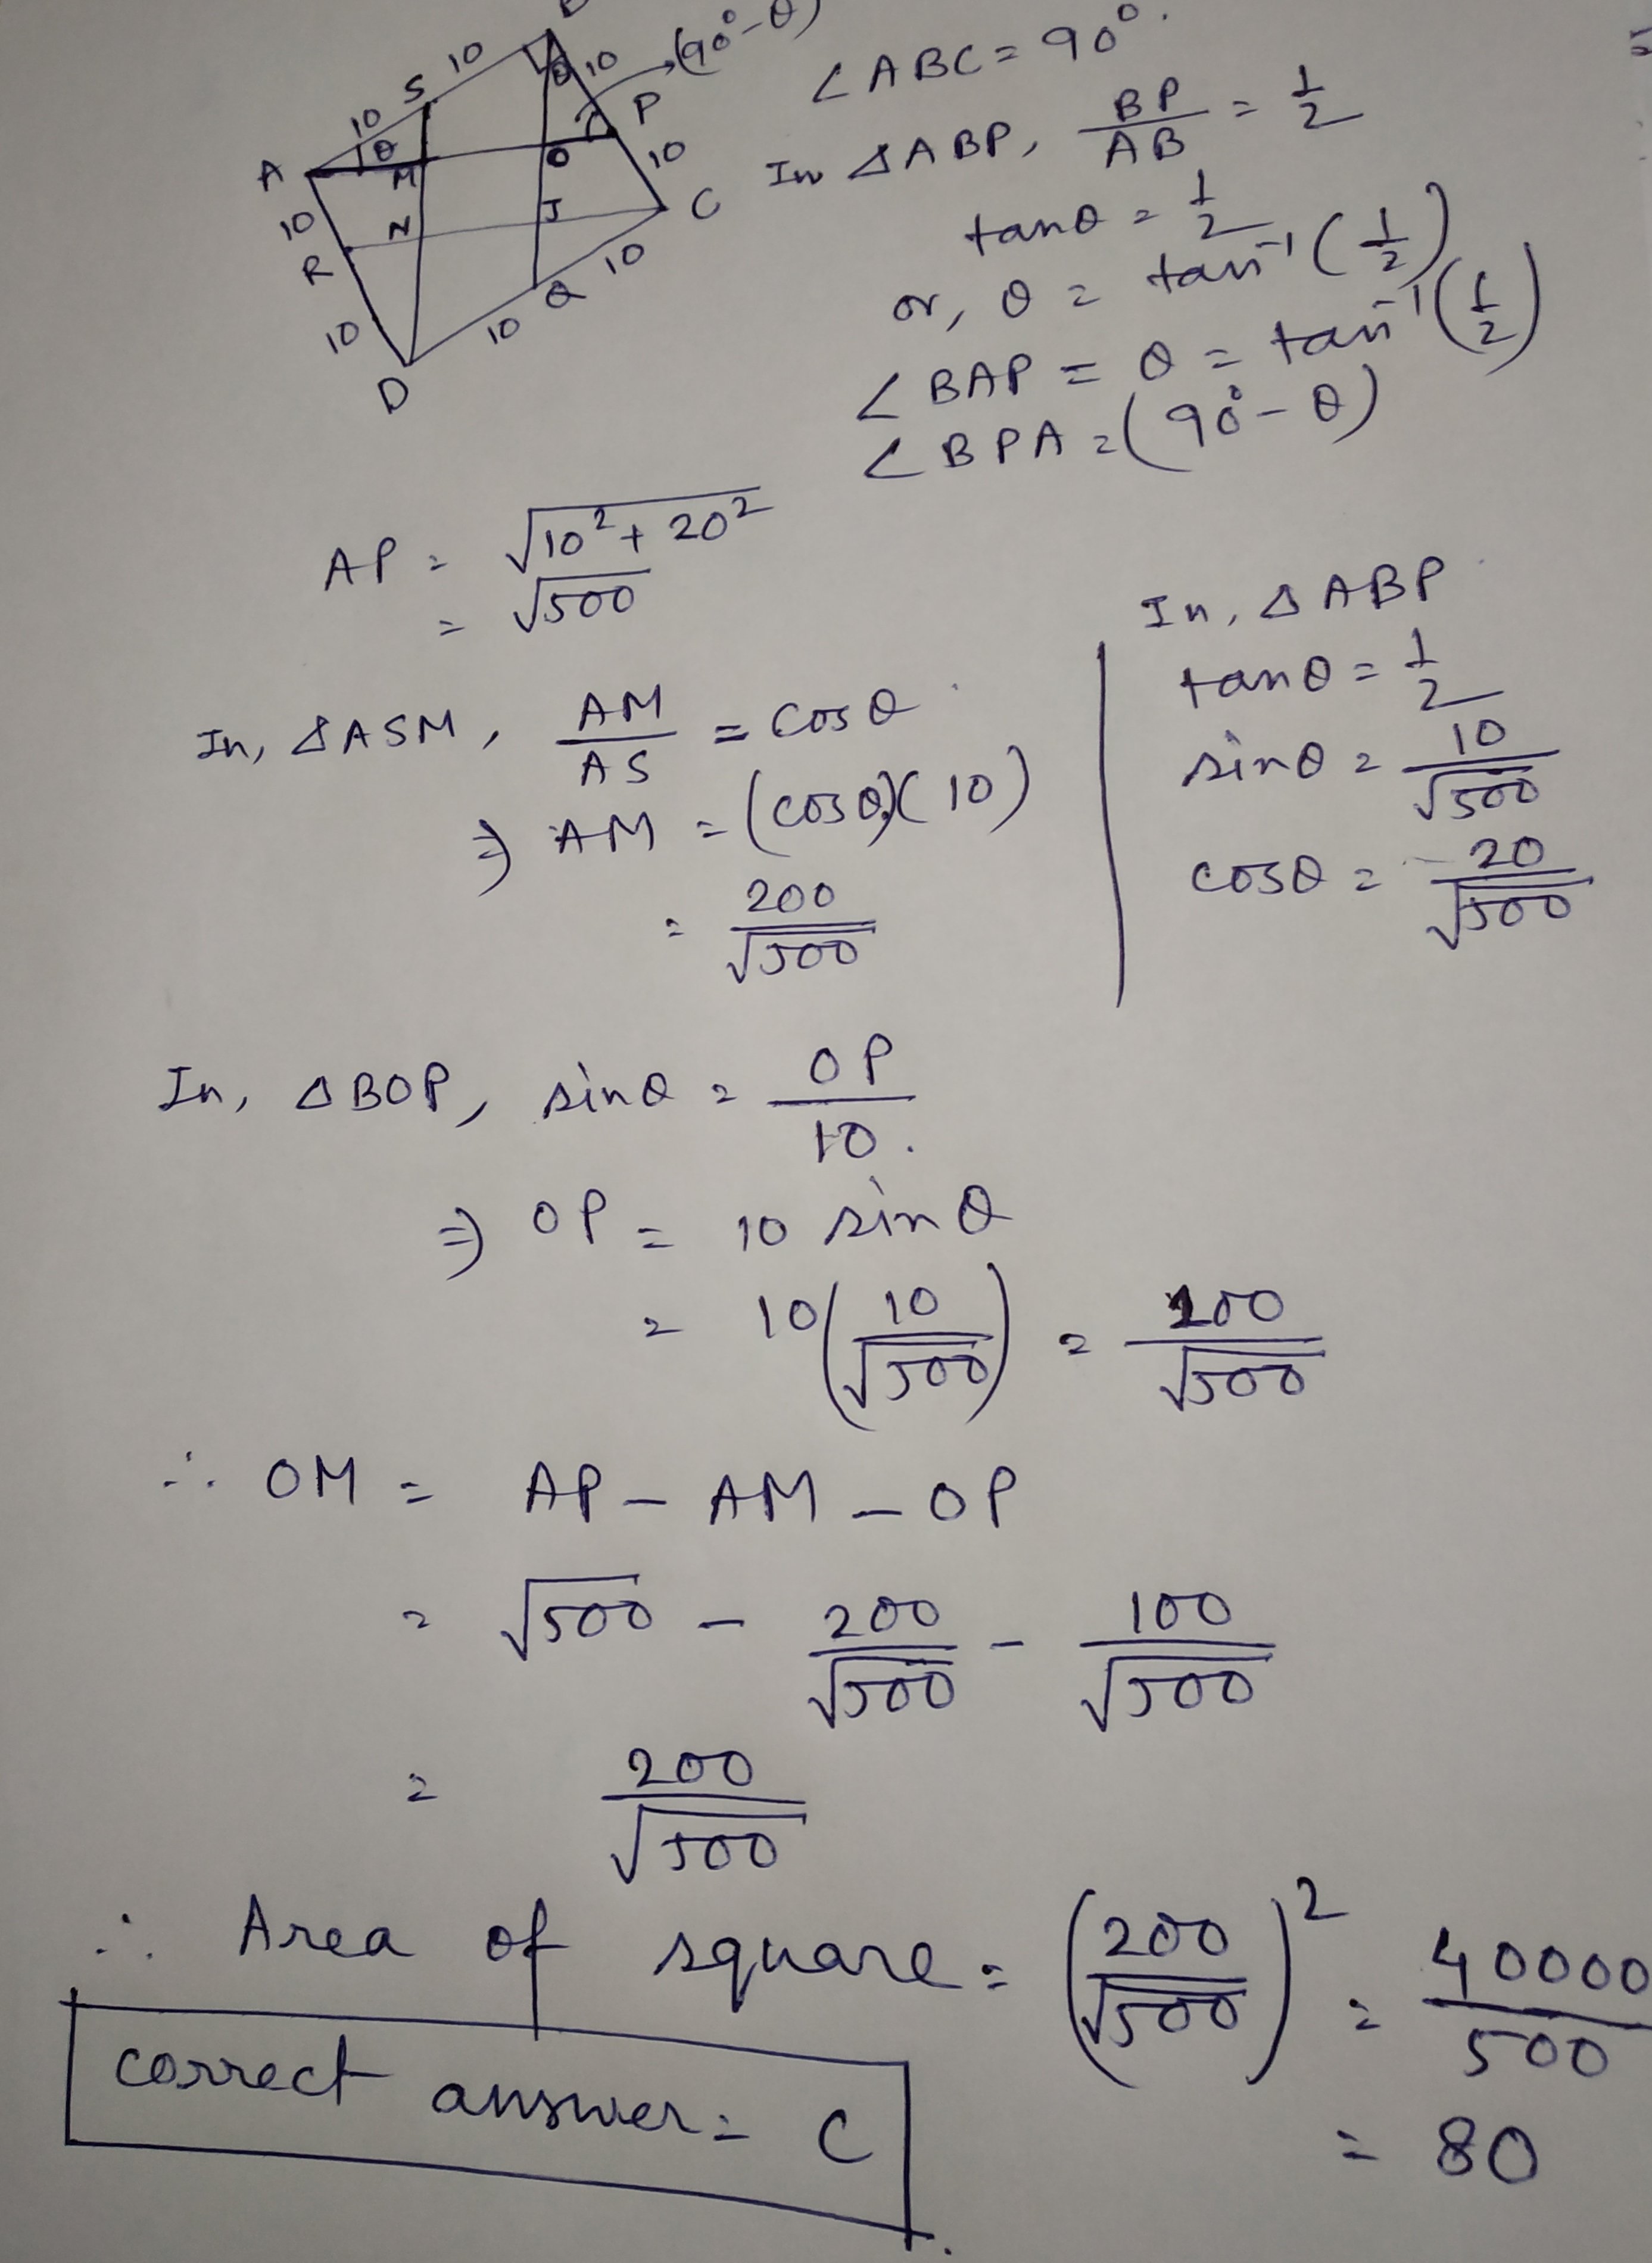 (90°-θ)
10
10
S
P
10
θ
θ
A
M
O
10
C
10
N
J
R
Q
10
10
10
D
∠ABC = 90°.
In ΔABP, BP/AB = 1/2
tanθ = 1/2
or, θ = tan⁻¹(1/2)
∠BAP = θ = tan⁻¹(1/2)
∠BPA = (90°-θ)
AP = √(10² + 20²)
= √500
In, ΔASM, AM/AS = cosθ
⇒ AM = (cosθ)(10)
= 200/√500
In, ΔABP
tanθ = 1/2
sinθ = 10/√500
cosθ = 20/√500
In, ΔBOP, sinθ = OP/10.
⇒ OP = 10 sinθ
= 10(10/√500) = 100/√500
∴ OM = AP - AM - OP
= √500 - 200/√500 - 100/√500
= 200/√500
∴ Area of square = (200/√500)² = 40000/500
= 80
correct answer = C